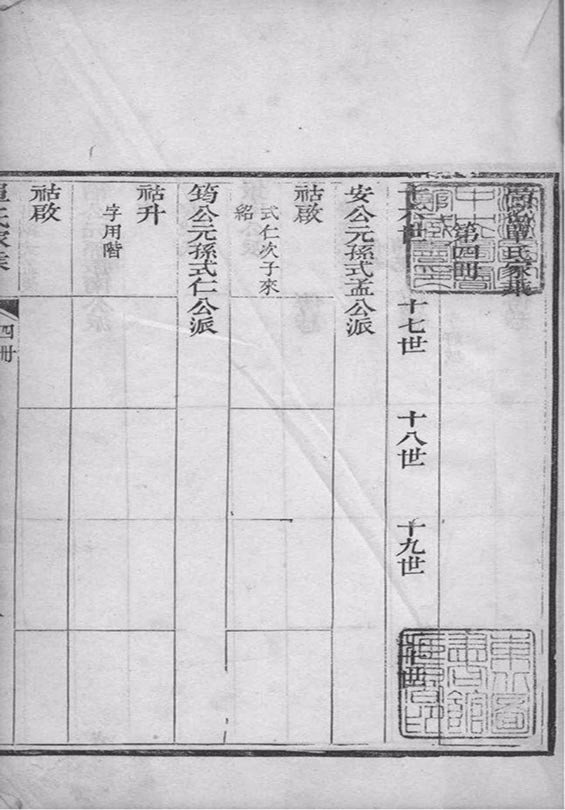 單氏家乘
第四冊
十六世
十七世
十八世
十九世
二十世
安公元孫式孟公派
祜啟
式仁次子來
紹
筠公元孫式仁公派
祜升
字用階
祜啟
四冊